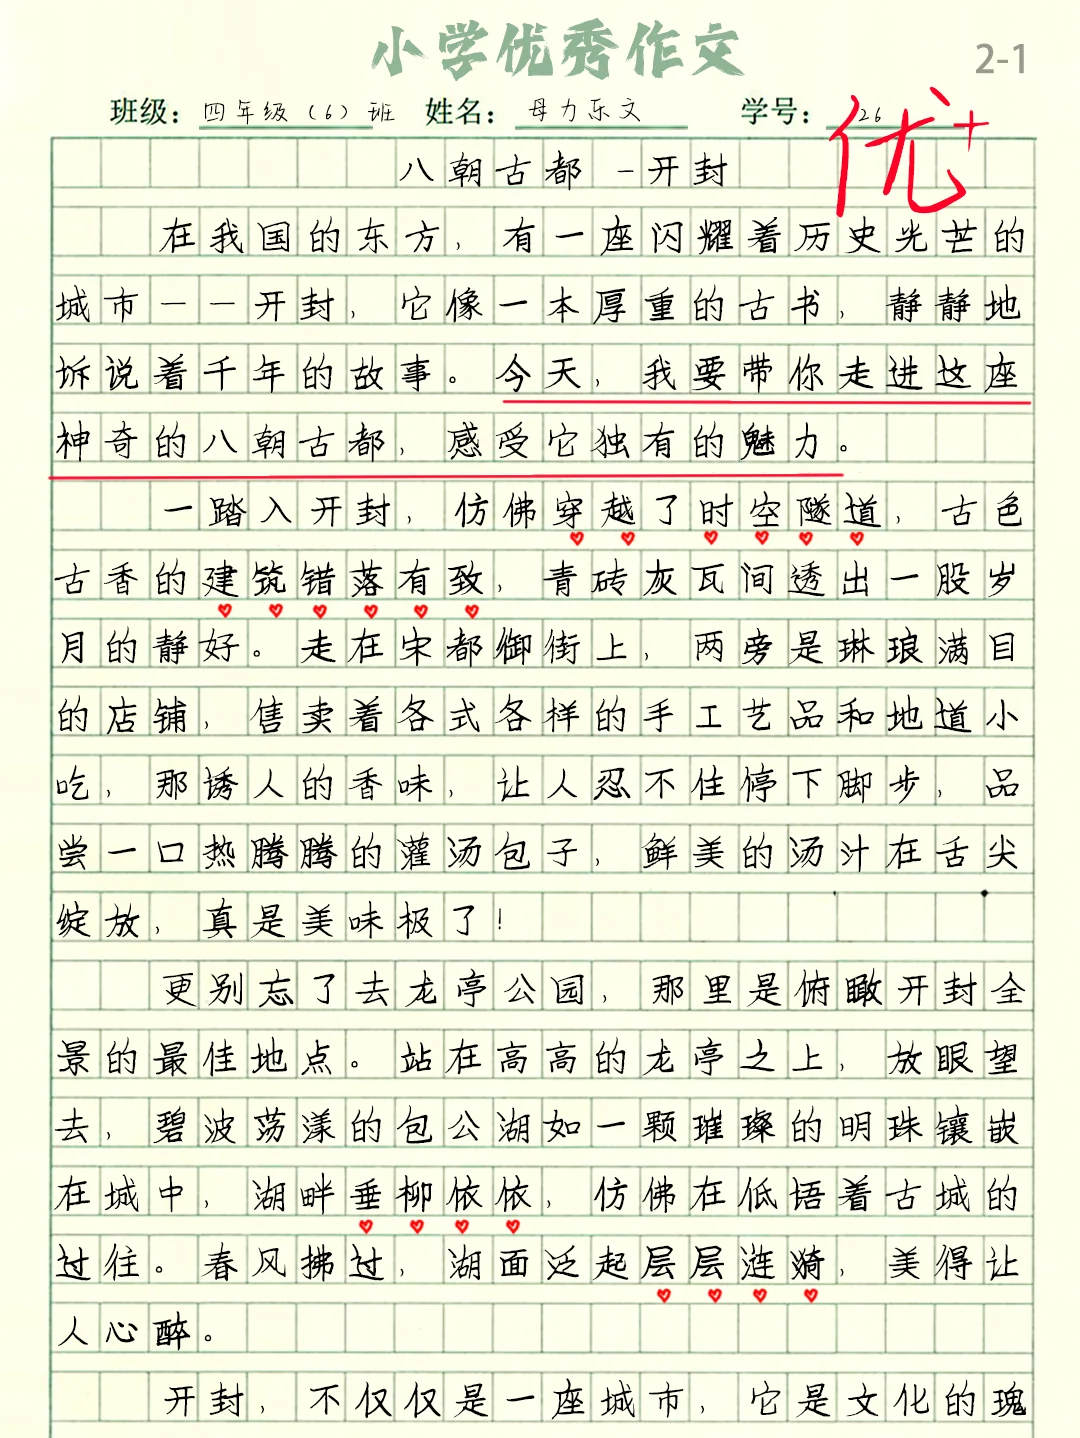 小学优秀作文
2-1
班级：四年级（6）班 姓名：母力乐文 学号：26
优+
八朝古都 -开封
在我国的东方，有一座闪耀着历史光芒的
城市——开封，它像一本厚重的古书，静静地
坼说着千年的故事。今天，我要带你走进这座
神奇的八朝古都，感受它独有的魅力。
一踏入开封，仿佛穿越了时空隧道，古色
古香的建筑错落有致，青砖灰瓦间透出一股岁
月的静好。走在宋都御街上，两旁是琳琅满目
的店铺，售卖着各式各样的手工艺品和地道小
吃，那诱人的香味，让人忍不住停下脚步，品
尝一口热腾腾的灌汤包子，鲜美的汤汁在舌尖
绽放，真是美味极了！
更别忘了去龙亭公园，那里是俯瞰开封全
景的最佳地点。站在高高的龙亭之上，放眼望
去，碧波荡漾的包公湖如一颗璀璨的明珠镶嵌
在城中，湖畔垂柳依依，仿佛在低语着古城的
过往。春风拂过，湖面泛起层层涟漪，美得让
人心醉。
开封，不仅仅是一座城市，它是文化的瑰